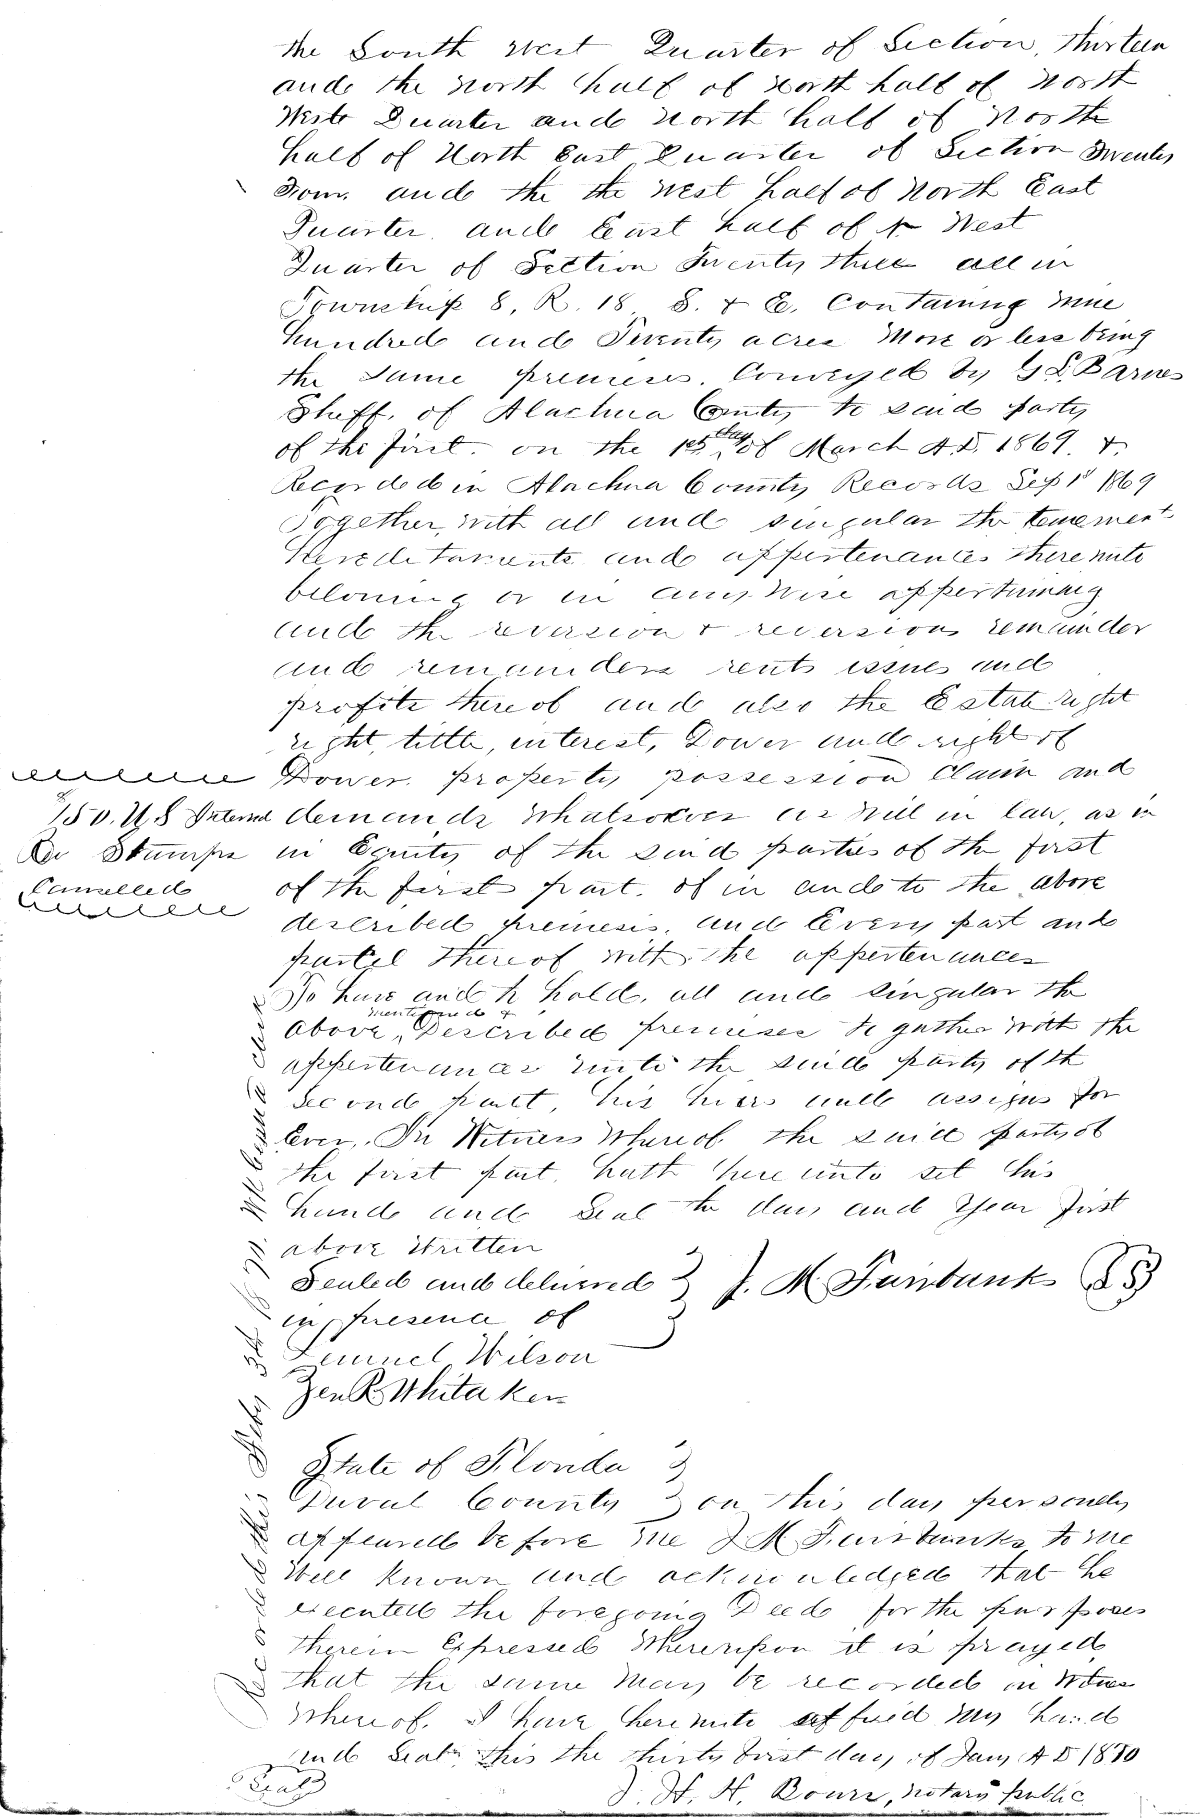 the South West Quarter of Section, Thirteen
and the North half of North half of North
West Quarter and North half of North
half of North East Quarter of Section Twenty
Four. and the the West half of North East
Quarter. and East half of N West
Quarter of Section Twenty three all in
Township 8, R. 18 S. & E. Containing nine
hundred and Twenty acres More or less being
the same premises. Conveyed by G L. Barnes
Sheff. of Alachua County to said party
of the first. on the 1st day of March A.D. 1869. &
Recorded in Alachua County Records Sep 1st 1869
Together, with all and singular the tenement
Hereditaments and appertenances thereunto
beloning or in any wise appertaining
and the reversion & reversions remainder
and remainders rents issues and
profits thereof and also the Estate right
right, tittle, interest, Dower and right of
Dower. property possession Claim and
demands Whatsoever as Well in law, as in
in Equity of the said parties of the first
of the first part. of in and to the above
described premises. and Every part and
parcel thereof with the appertenances
To have and to hold, all and singular the
above, mentioned & Described premises together with the
appertenances unto the said party of the
second part, his hiers and assigns for
Ever. In Witness Whereof the said party of
the first part. hath here unto set his
hand and Seal the day and Year first
above Written
Sealed and delivered J. M Fairbanks (LS)
in presence of
Lemuel Wilson
Zen R. Whitaker
State of Florida
Duval County on this day personly
appeared before me J M Fairbanks to me
Well known and acknowledged that he
executed the foregoing Deed for the purposes
therein Expressed Whereupon it is prayed
that the same May be recorded in Witness
Whereof. I have hereunto affixed my hand
and Seal, this the thirty first day of Jany A D 1870
J. H. N. Bours, notary public
Seal
150. U S Internal
Rev Stamps
Cancelled
Recorded this Feby 3rd 1870.